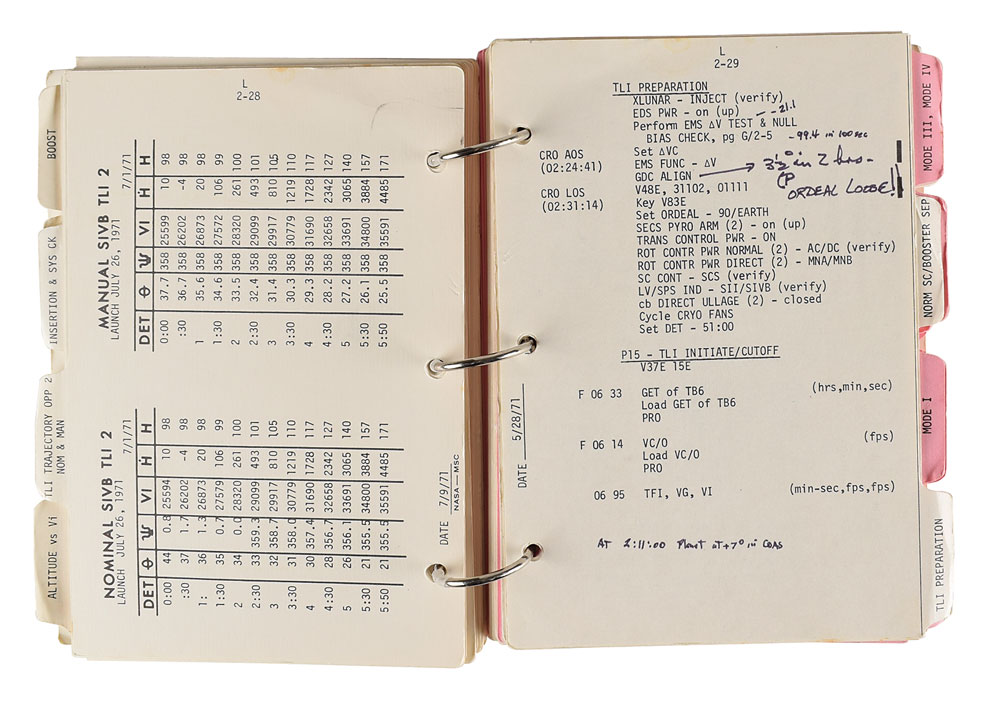 L
2-28
NOMINAL SIVB TLI 2
LAUNCH JULY 26, 1971 7/1/71
DET θ Ψ VI Ḣ H
0:00 44 0.8 25594 10 98
:30 37 1.7 26202 -4 98
1: 36 1.3 26873 20 98
1:30 35 0.7 27579 106 99
2 34 0.0 28320 261 100
2:30 33 359.3 29099 493 101
3 32 358.7 29917 810 105
3:30 31 358.0 30779 1219 110
4 30 357.4 31690 1728 117
4:30 28 356.7 32658 2342 127
5 26 356.1 33691 3065 140
5:30 21 355.5 34800 3884 157
5:50 21 355.5 35591 4485 171
MANUAL SIVB TLI 2
LAUNCH JULY 26, 1971 7/1/71
DET θ Ψ VI Ḣ H
0:00 37.7 358 25599 10 98
:30 36.7 358 26202 -4 98
1 35.6 358 26873 20 98
1:30 34.6 358 27572 106 99
2 33.5 358 28320 261 100
2:30 32.4 358 29099 493 101
3 31.4 358 29917 810 105
3:30 30.3 358 30779 1219 110
4 29.3 358 31690 1728 117
4:30 28.2 358 32658 2342 127
5 27.2 358 33691 3065 140
5:30 26.1 358 34800 3884 157
5:50 25.5 358 35591 4485 171
DATE 7/9/71
NASA — MSC
BOOST
INSERTION & SYS CK
TLI TRAJECTORY OPP 2
NOM & MAN
ALTITUDE vs Vi
L
2-29
TLI PREPARATION
XLUNAR - INJECT (verify)
EDS PWR - on (up)
Perform EMS ΔV TEST & NULL -21.1
BIAS CHECK, pg G/2-5 -99.4 in 100 sec
CRO AOS Set ΔVC
(02:24:41) EMS FUNC - ΔV
GDC ALIGN → 3½° in 2 hrs-
ORDEAL LOOSE!!
CRO LOS V48E, 31102, 01111
(02:31:14) Key V83E
Set ORDEAL - 90/EARTH
SECS PYRO ARM (2) - on (up)
TRANS CONTROL PWR - ON
ROT CONTR PWR NORMAL (2) - AC/DC (verify)
ROT CONTR PWR DIRECT (2) - MNA/MNB
SC CONT - SCS (verify)
LV/SPS IND - SII/SIVB (verify)
cb DIRECT ULLAGE (2) - closed
Cycle CRYO FANS
Set DET - 51:00
P15 - TLI INITIATE/CUTOFF
V37E 15E
F 06 33 GET of TB6 (hrs,min,sec)
Load GET of TB6
PRO
F 06 14 VC/O (fps)
Load VC/O
PRO
06 95 TFI, VG, VI (min-sec,fps,fps)
AT 2:11:00 Planet at +7° in COAS
DATE 5/28/71
MODE III, MODE IV
NORM SC/BOOSTER SEP
MODE I
TLI PREPARATION